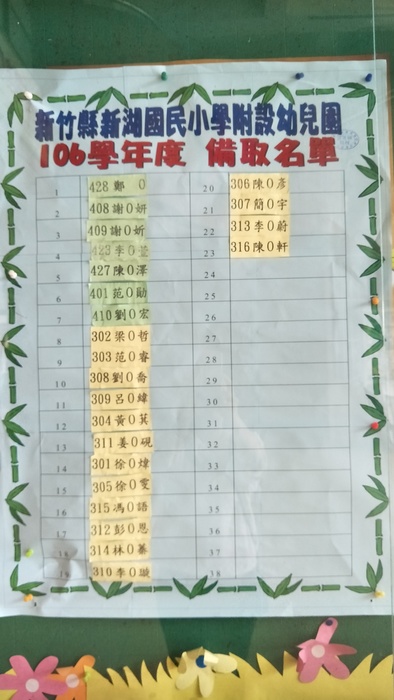 新竹縣新湖國民小學附設幼兒園
106學年度 備取名單
1 428 鄭 O
2 408 謝O妍
3 409 謝O妡
4 423 李O萱
5 427 陳O澤
6 401 范O勛
7 410 劉O宏
8 302 梁O哲
9 303 范O睿
10 308 劉O喬
11 309 呂O緯
12 304 黃O萁
13 311 姜O硯
14 301 徐O煒
15 305 徐O雯
16 315 馮O語
17 312 彭O恩
18 314 林O蓁
19 310 李O璇
20 306 陳O彥
21 307 簡O宇
22 313 李O蔚
23 316 陳O軒
24
25
26
27
28
29
30
31
32
33
34
35
36
37
38